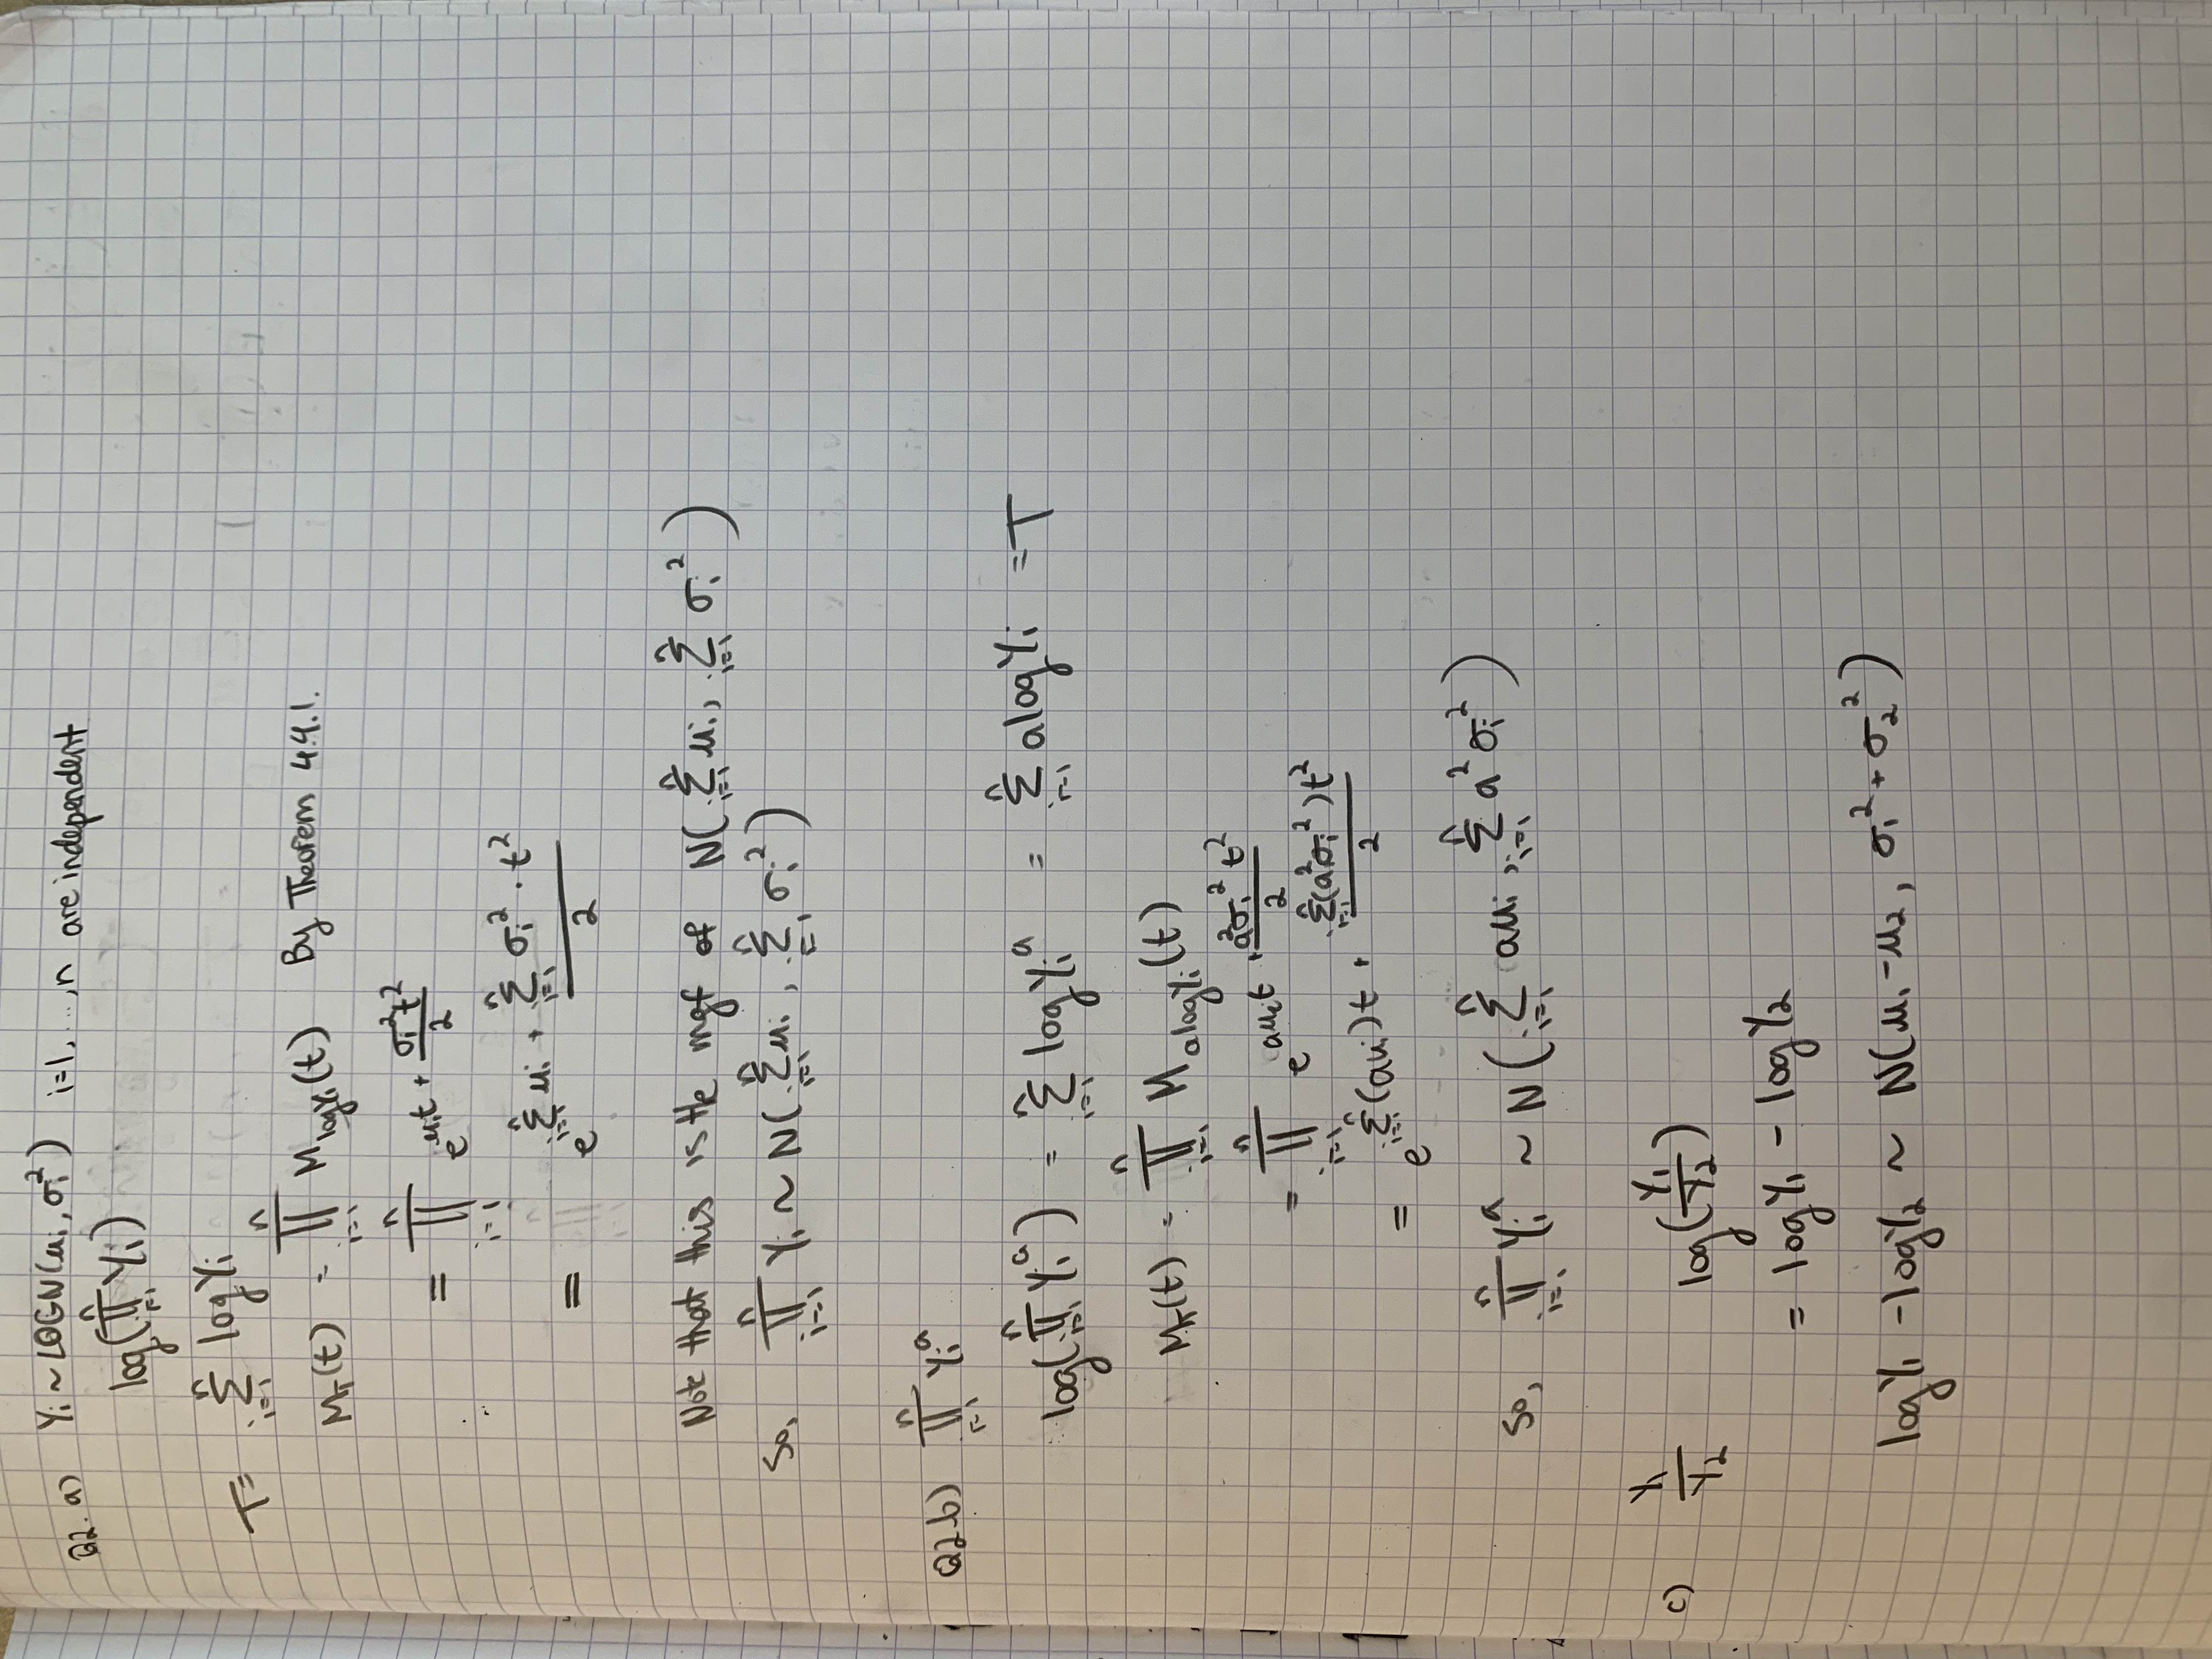 Q2. a) Yᵢ ~ LOGN(μᵢ, σᵢ²) i=1, ..., n are independent
log(∏ᵢ₌₁ⁿ Yᵢ)
T = ∑ᵢ₌₁ⁿ log Yᵢ
M_T(t) = ∏ᵢ₌₁ⁿ M_{log Yᵢ}(t) By Theorem 4.4.1.
= ∏ᵢ₌₁ⁿ e^{μᵢt + σᵢ²t²/2}
= e^{∑ᵢ₌₁ⁿ μᵢ + (∑ᵢ₌₁ⁿ σᵢ² · t²)/2}
Note that this is the mgf of N(∑ᵢ₌₁ⁿ μᵢ, ∑ᵢ₌₁ⁿ σᵢ²)
So, ∏ᵢ₌₁ⁿ Yᵢ ~ N(∑ᵢ₌₁ⁿ μᵢ, ∑ᵢ₌₁ⁿ σᵢ²)
Q2.b) ∏ᵢ₌₁ⁿ Yᵢᵃ
log(∏ᵢ₌₁ⁿ Yᵢᵃ) = ∑ᵢ₌₁ⁿ log Yᵢᵃ = ∑ᵢ₌₁ⁿ a log Yᵢ = T
M_T(t) = ∏ᵢ₌₁ⁿ M_{a log Yᵢ}(t)
= ∏ᵢ₌₁ⁿ e^{aμᵢt + a²σᵢ²t²/2}
= e^{∑ᵢ₌₁ⁿ(aμᵢ)t + (∑ᵢ₌₁ⁿ(a²σᵢ²)t²)/2}
So, ∏ᵢ₌₁ⁿ Yᵢᵃ ~ N(∑ᵢ₌₁ⁿ aμᵢ, ∑ᵢ₌₁ⁿ a²σᵢ²)
c) Y₁/Y₂ log(Y₁/Y₂)
= log Y₁ - log Y₂
log Y₁ - log Y₂ ~ N(μ₁ - μ₂, σ₁² + σ₂²)